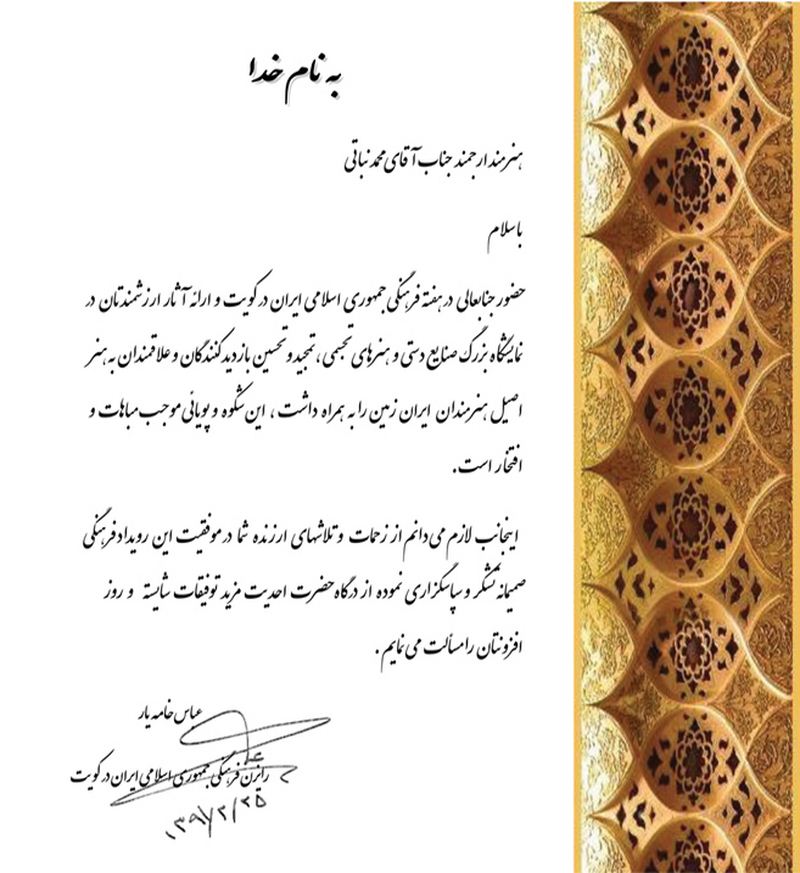 به نام خدا
هنرمند ارجمند جناب آقای محمد نباتی
با سلام
حضور جنابعالی در هفته فرهنگی جمهوری اسلامی ایران در کویت و ارائه آثار ارزشمندتان در
نمایشگاه بزرگ صنایع دستی و هنرهای تجسمی ، تمجید و تحسین بازدید کنندگان و علاقمندان به هنر
اصیل هنرمندان ایران زمین را به همراه داشت ، این شکوه و پویائی موجب مباهات و
افتخار است.
اینجانب لازم می دانم از زحمات و تلاشهای ارزنده شما در موفقیت این رویداد فرهنگی
صمیمانه تشکر و سپاسگزاری نموده از درگاه حضرت احدیت مزید توفیقات شایسته و روز
افزونتان را مسألت می نمایم .
عباس خامه یار
رایزن فرهنگی جمهوری اسلامی ایران در کویت
۱۳۹۱/۲/۲۵